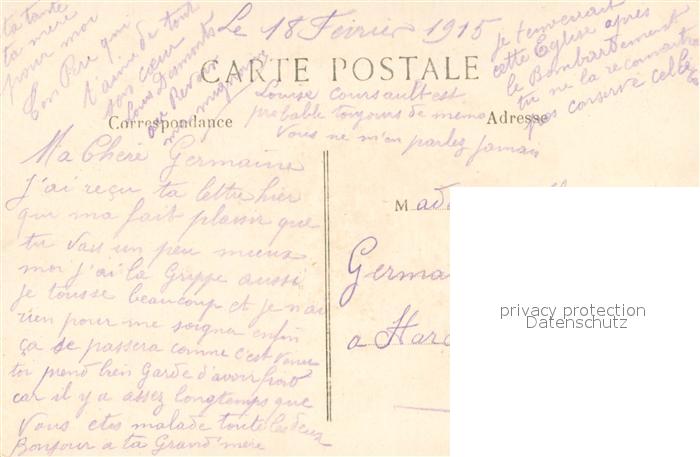 Le 18 Fevrier 1915
CARTE POSTALE
Correspondance
Adresse
Ma Chere Germaine
J'ai reçu ta lettre hier
qui ma fait plaisir que
tu vas un peu mieux
moi j'ai la Grippe aussi
je tousse beaucoup et je n'ai
rien pour me soigner enfin
ça se passera comme c'est venu
toi prend bien Garde d'avoir froid
car il y a assez longtemps que
vous etes malade toute les deux
Bonjour a ta Grand'mere
ta tante
ta mère
pour moi
Ton Pere qui
t'aime de tout
son cœur
Louis Desmonts
au Revoir
ma mignonne
Louise Coursault est
probable toujours de meme
Vous ne m'en parlez jamais
je t'enverrait
cette Eglise apres
le Bombardement
tu ne la reconnaitra
pas conserve celle
M ad
Germa
a Harc
privacy protection
Datenschutz